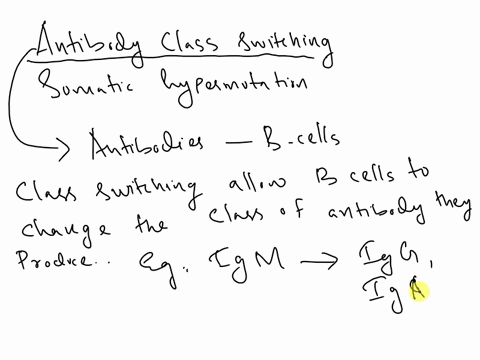 Antibody Class switching
Somatic hypermutation
→ Antibodies — B-cells
Class switching allow B cells to
change the class of antibody they
Produce.. Eg. IgM → IgG,
IgA